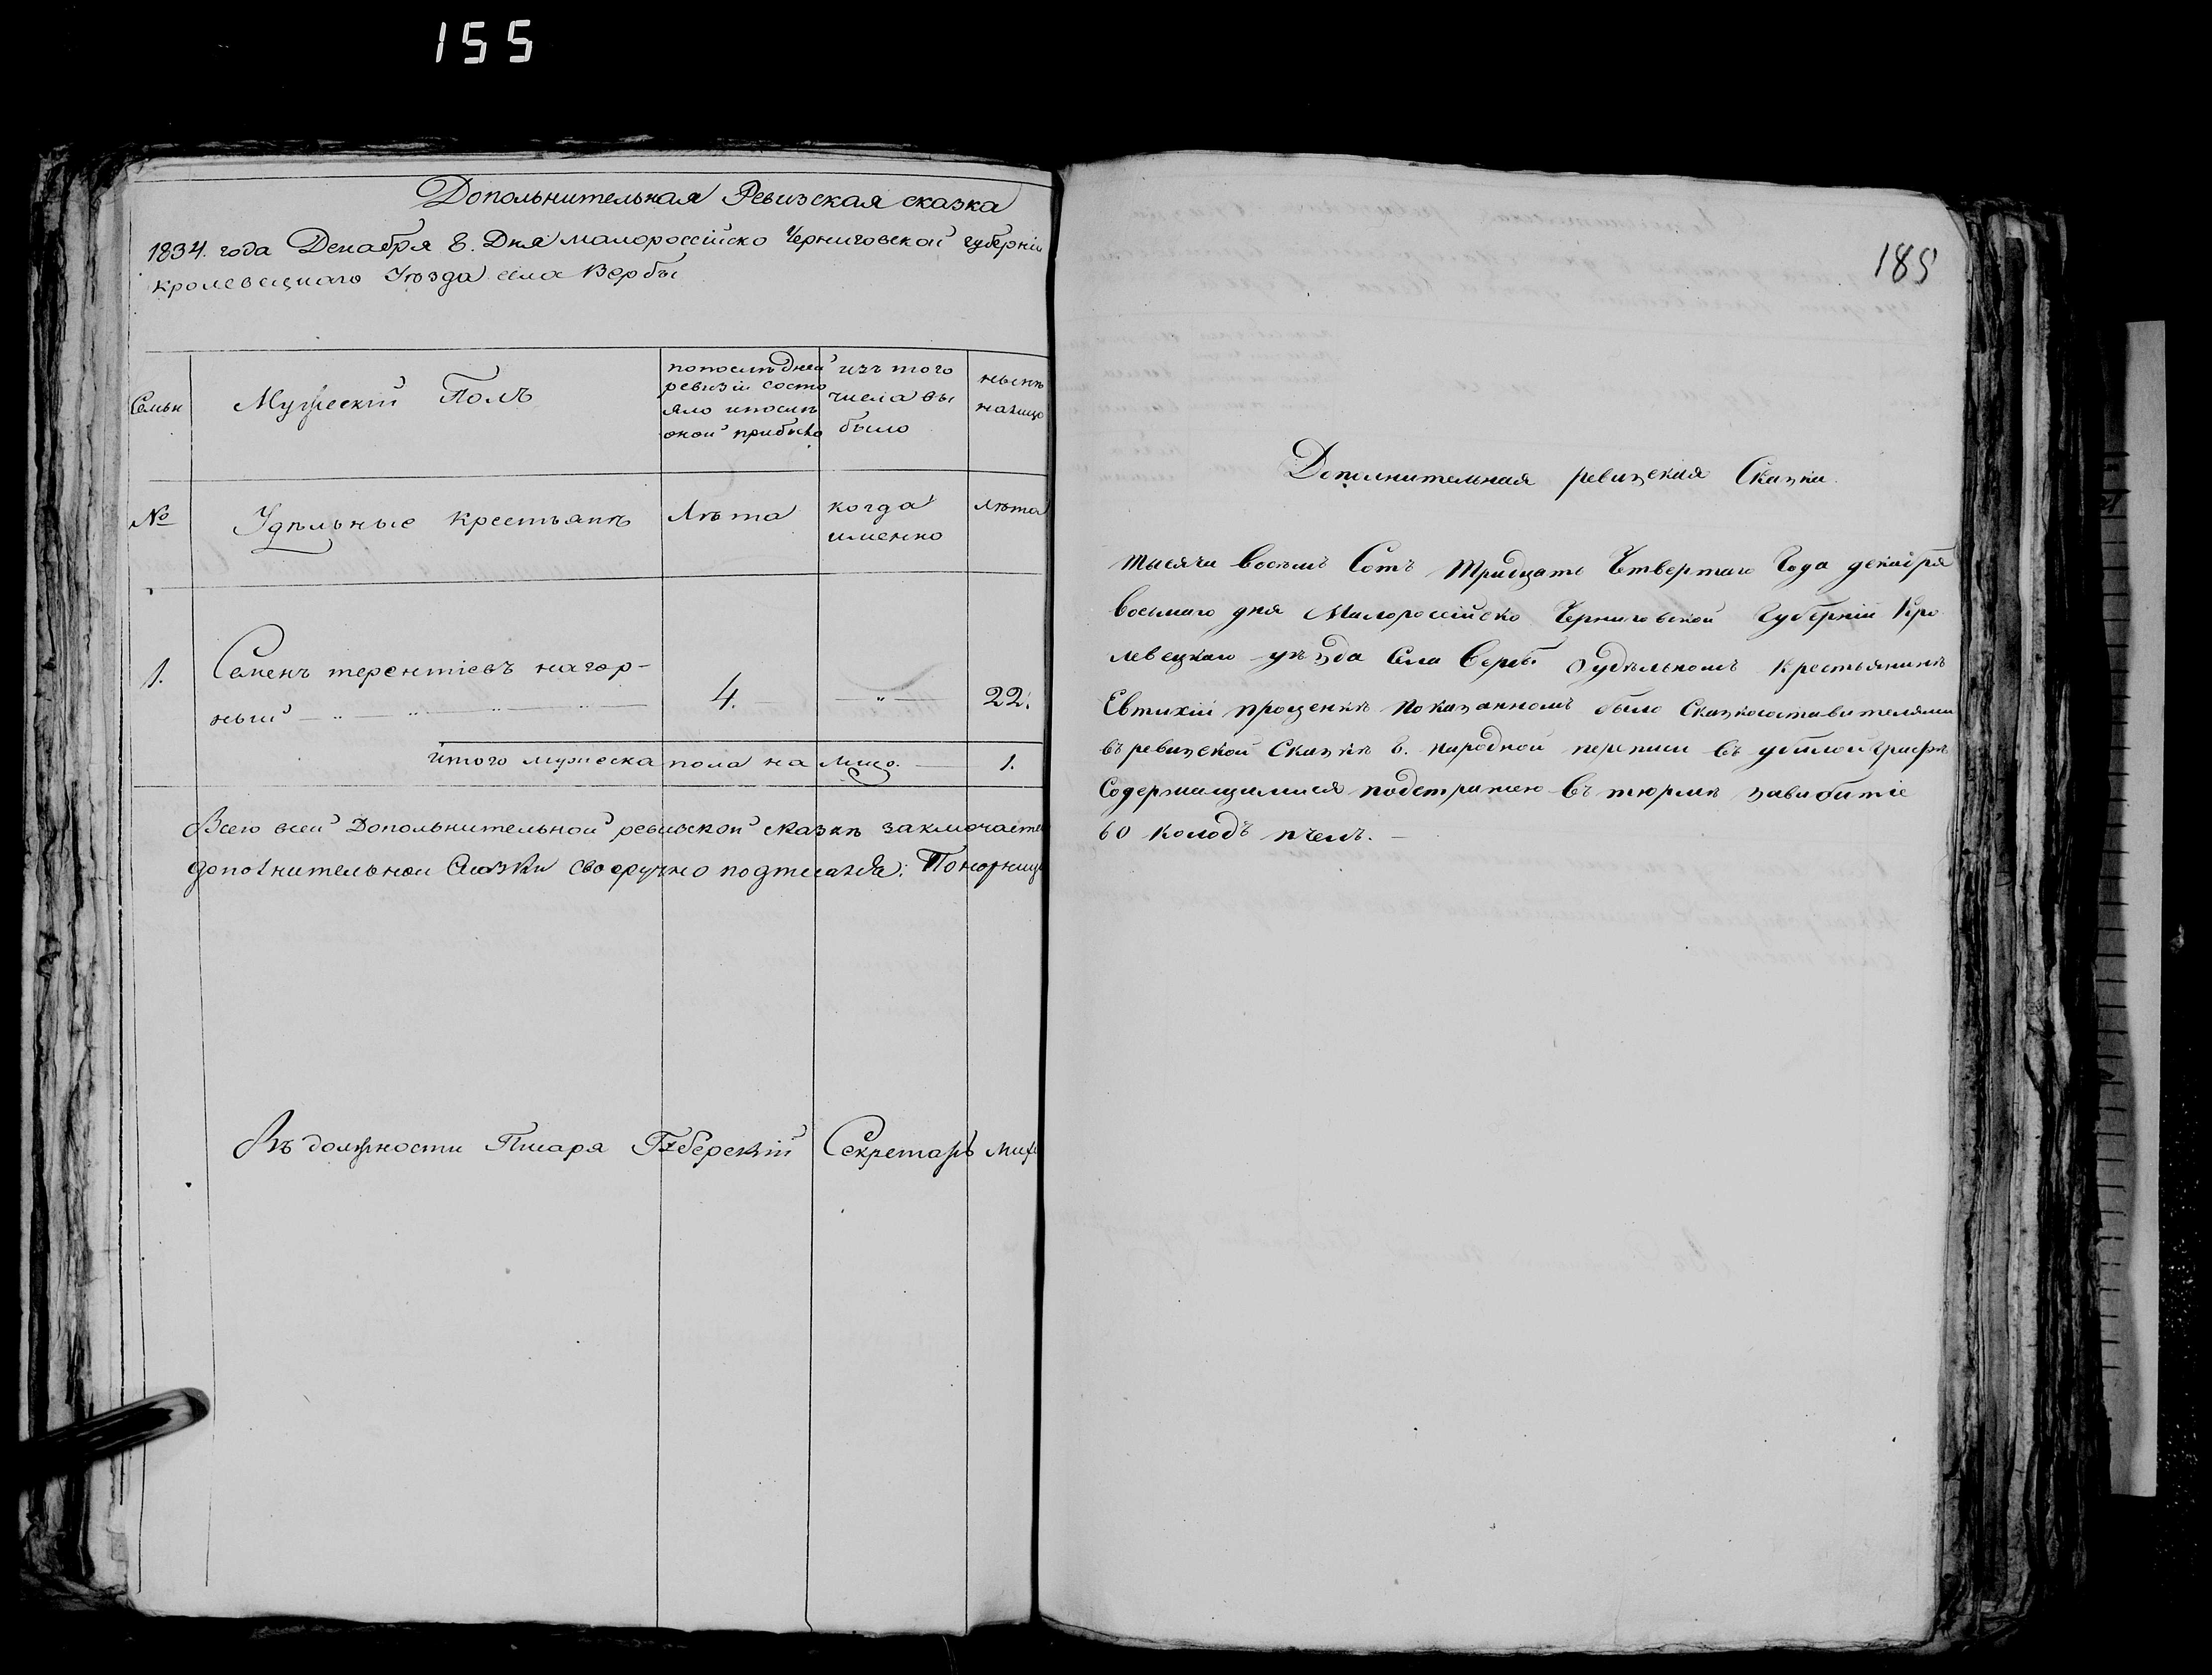 155
Дополънительная Ревизская сказка
1834. года Декабря 8. Дня малороссiйско Черниговской губернiи
кролевецкаго Уѣзда села Вербы
Семьи
Мужескiй Полъ
попослѣдней ревизiи состояло ипослѣ оной прибыло
изъ того числа выбыло
нынѣ налицо
№
Удѣльные крестьянѣ
Лѣта
когда именно
Лѣта
1. Семенъ терентiевъ нагор-
ный 4. 22.
итого мужеска пола на лицо. 1.
Всего всей Дополънительной ревизской сказкѣ заключаетс
дополнительной Сказки своеручно подписался: Понорниц
Въ должности Писаря Губерскiй Секретарь
185
Дополнительная ревизская Сказка.
тысяча восемь Сотъ тридцать Четвертаго Года декабря
восьмаго дня Малороссiйско Черниговской Губернiи Кро
левецкаго уѣзда Села Вербы Оудѣльномъ крестьянинѣ
Евтихiи проценкѣ показанномъ было Сказкосоставителями
въ ревизской Сказкѣ 8. народной переписи въ убылой графѣ
Содержащимися подстражею въ тюрмѣ
60 колодъ пчелъ.